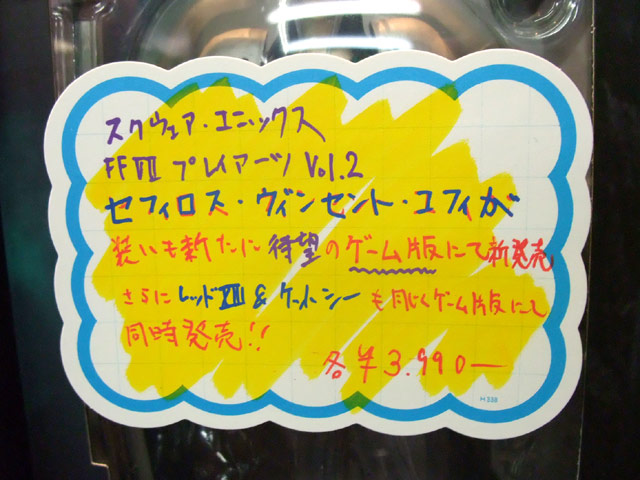 スクウェア・エニックス
FFⅦ プレイアーツ Vol.2
セフィロス・ヴィンセント・ユフィが
装いも新たに待望のゲーム版にて新発売
さらにレッドXIII & ケットシーも同じくゲーム版にて
同時発売!!
各¥3.990ー
M 338